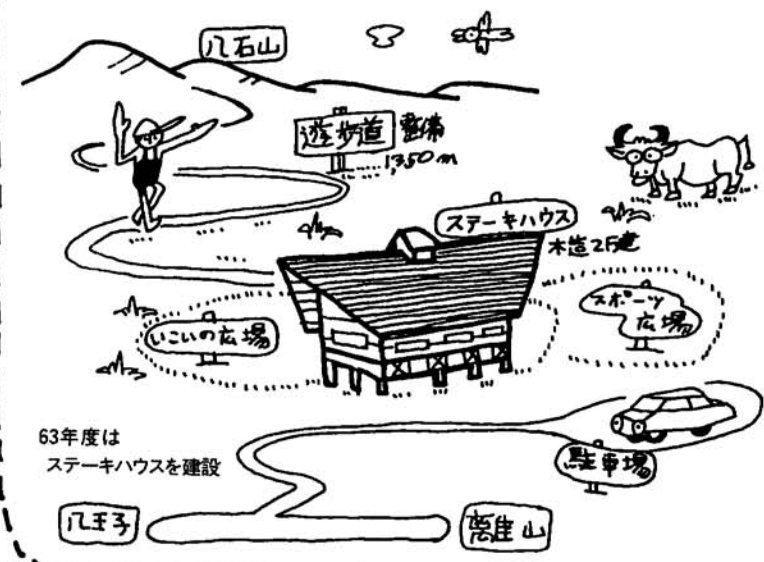 八石山
遊歩道
整備
1,350m
ステーキハウス
木造2F建
スポーツ
広場
いこいの広場
63年度は
ステーキハウスを建設
駐車場
八王子
山